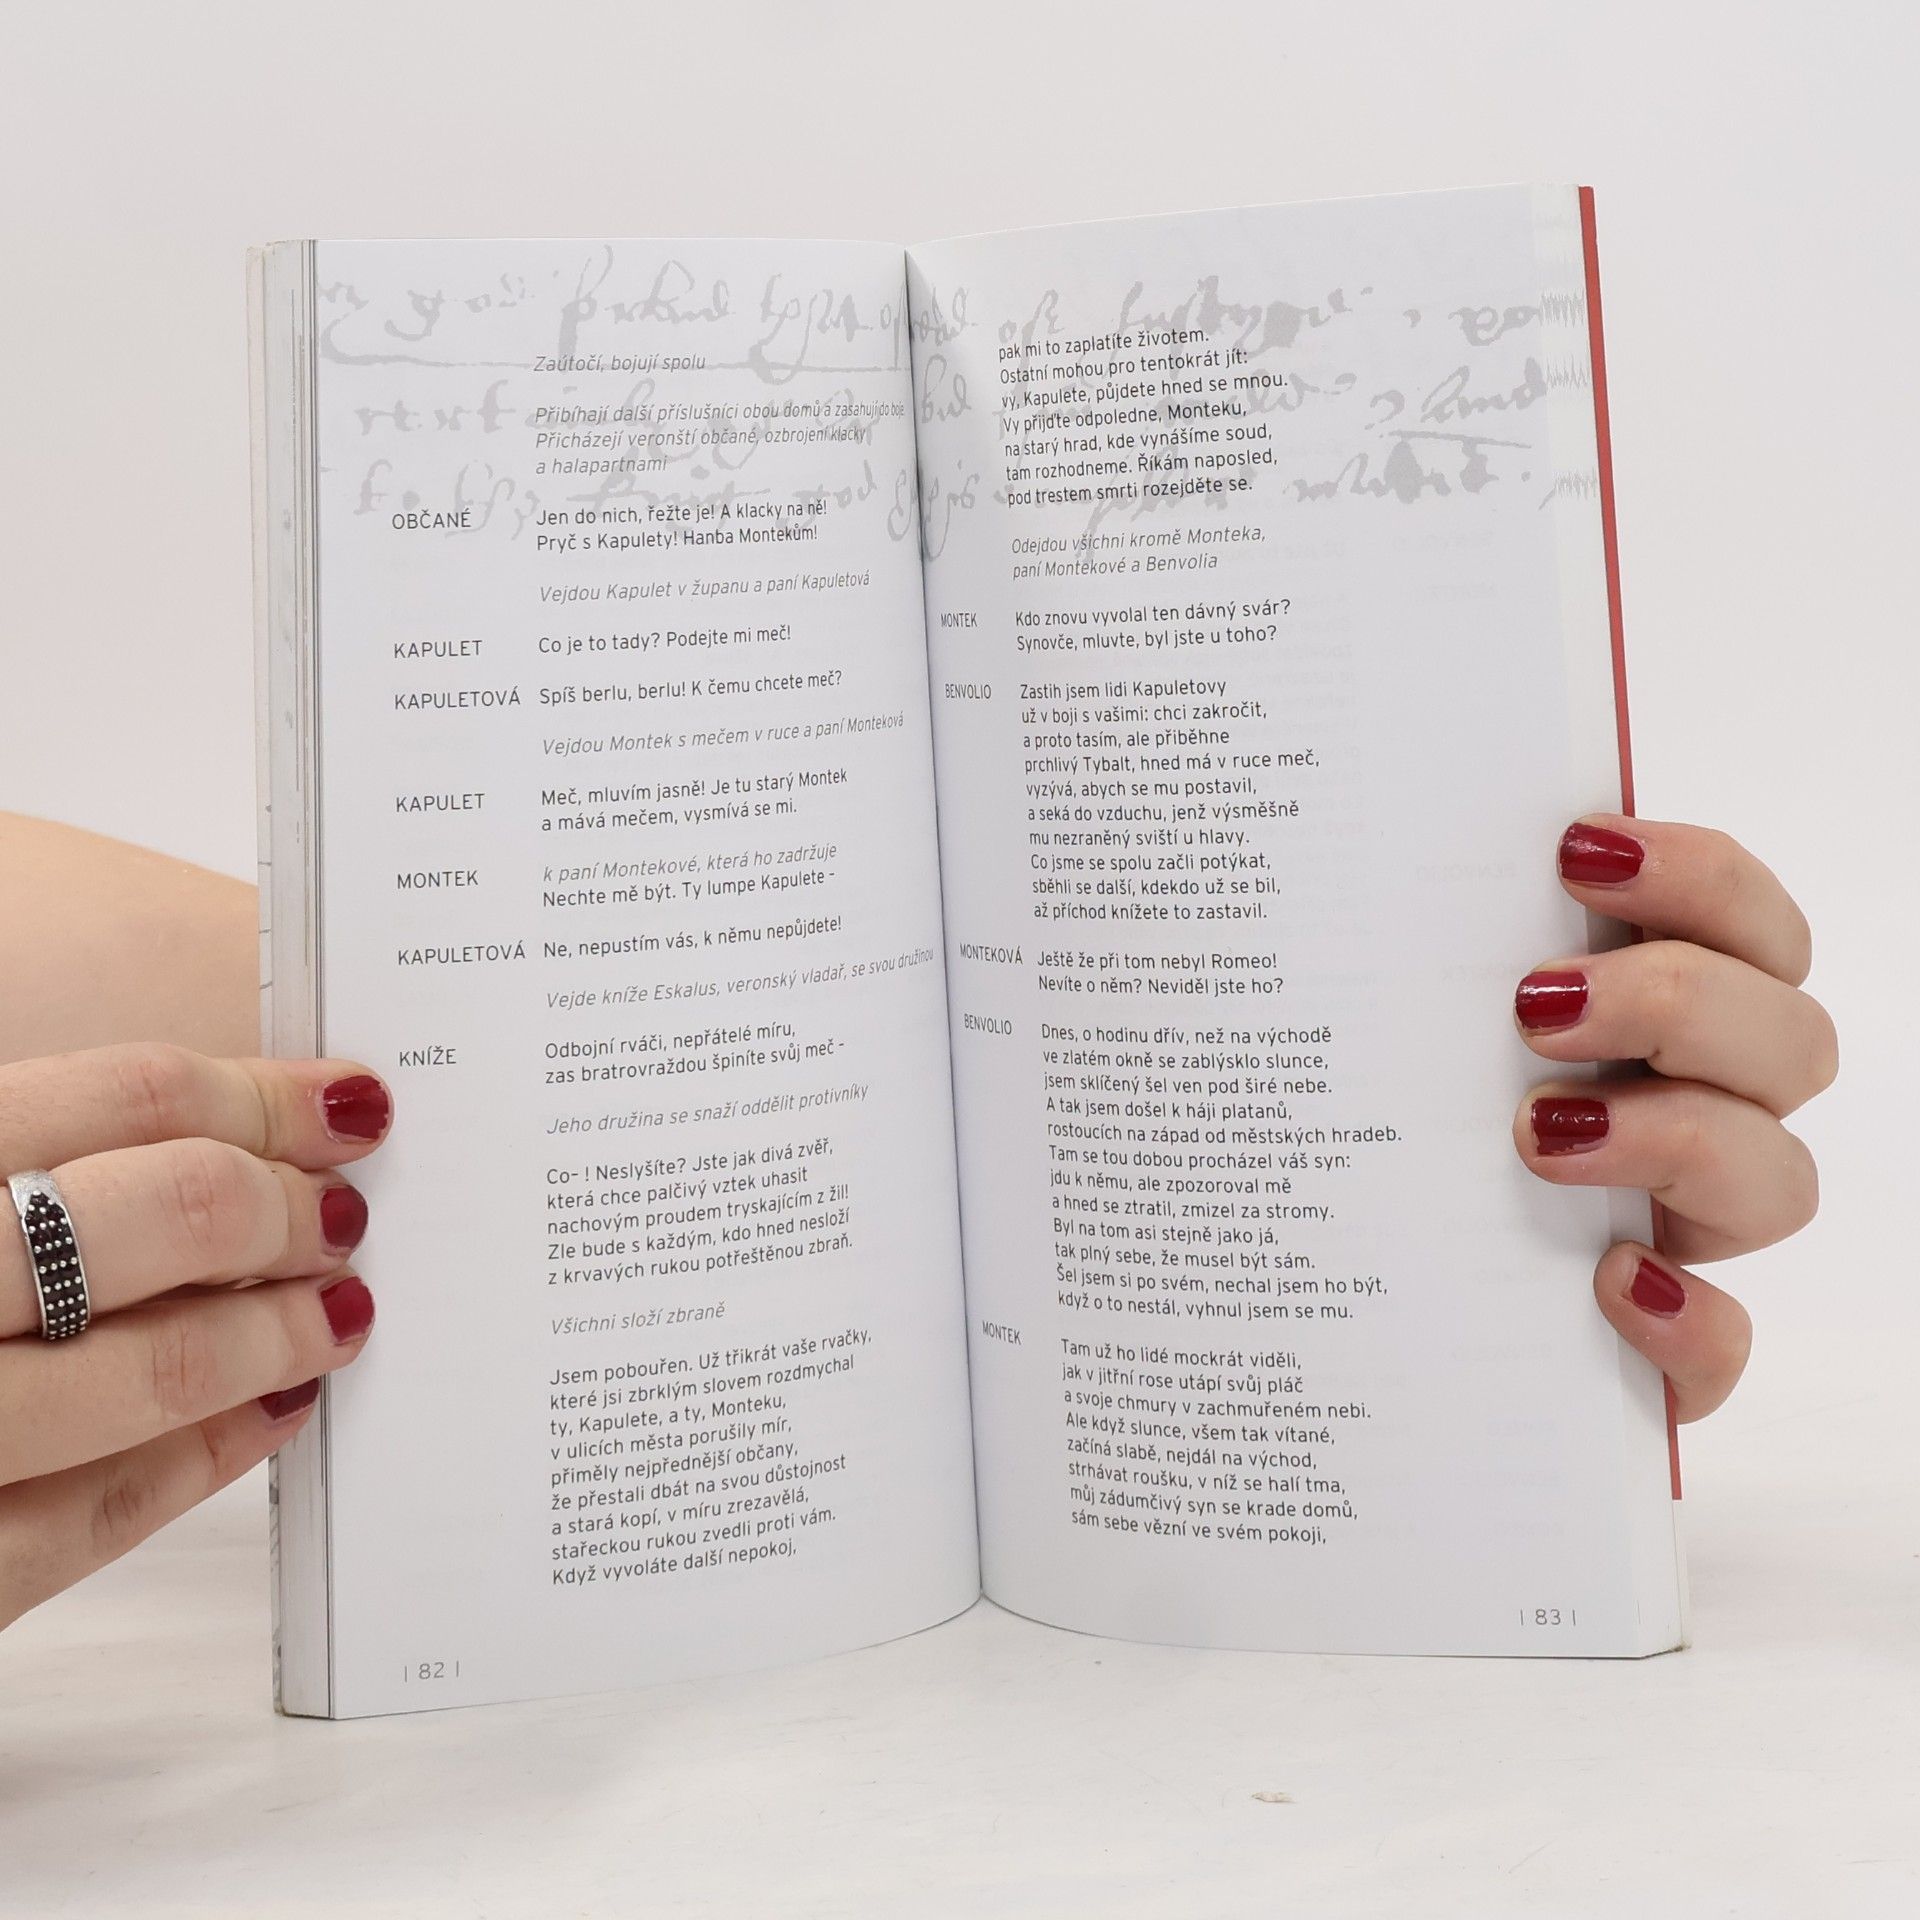 Zaútočí, bojují spolu
Přibíhají další příslušníci obou domů a zasahují do boje
Přicházejí veronští občané, ozbrojení klacky
a halapartnami
OBČANÉ Jen do nich, řežte je! A klacky na ně!
Pryč s Kapulety! Hanba Montekům!
Vejdou Kapulet v županu a paní Kapuletová
KAPULET Co je to tady? Podejte mi meč!
KAPULETOVÁ Spíš berlu, berlu! K čemu chcete meč?
Vejdou Montek s mečem v ruce a paní Monteková
KAPULET Meč, mluvím jasně! Je tu starý Montek
a mává mečem, vysmívá se mi.
MONTEK k paní Montekové, která ho zadržuje
Nechte mě být. Ty lumpe Kapulete -
KAPULETOVÁ Ne, nepustím vás, k němu nepůjdete!
Vejde kníže Eskalus, veronský vladař, se svou družinou
KNÍŽE Odbojní rváči, nepřátelé míru,
zas bratrovraždou špiníte svůj meč -
Jeho družina se snaží oddělit protivníky
Co- ! Neslyšíte? Jste jak divá zvěř,
která chce palčivý vztek uhasit
nachovým proudem tryskajícím z žil!
Zle bude s každým, kdo hned nesloží
z krvavých rukou potřeštěnou zbraň.
Všichni složí zbraně
Jsem pobouřen. Už třikrát vaše rvačky,
které jsi zbrklým slovem rozdmychal
ty, Kapulete, a ty, Monteku,
v ulicích města porušily mír,
přiměly nejpřednější občany,
že přestali dbát na svou důstojnost
a stará kopí, v míru zrezavělá,
stařeckou rukou zvedli proti vám.
Když vyvoláte další nepokoj,
| 82 |
pak mi to zaplatíte životem.
Ostatní mohou pro tentokrát jít:
vy, Kapulete, půjdete hned se mnou.
Vy přijďte odpoledne, Monteku,
na starý hrad, kde vynášíme soud,
tam rozhodneme. Říkám naposled,
pod trestem smrti rozejděte se.
Odejdou všichni kromě Monteka,
paní Montekové a Benvolia
MONTEK Kdo znovu vyvolal ten dávný svár?
Synovče, mluvte, byl jste u toho?
BENVOLIO Zastih jsem lidi Kapuletovy
už v boji s vašimi: chci zakročit,
a proto tasím, ale přiběhne
prchlivý Tybalt, hned má v ruce meč,
vyzývá, abych se mu postavil,
a seká do vzduchu, jenž výsměšně
mu nezraněný sviští u hlavy.
Co jsme se spolu začli potýkat,
sběhli se další, kdekdo už se bil,
až příchod knížete to zastavil.
MONTEKOVÁ Ještě že při tom nebyl Romeo!
Nevíte o něm? Neviděl jste ho?
BENVOLIO Dnes, o hodinu dřív, než na východě
ve zlatém okně se zablýsklo slunce,
jsem sklíčený šel ven pod širé nebe.
A tak jsem došel k háji platanů,
rostoucích na západ od městských hradeb.
Tam se tou dobou procházel váš syn:
jdu k němu, ale zpozoroval mě
a hned se ztratil, zmizel za stromy.
Byl na tom asi stejně jako já,
tak plný sebe, že musel být sám.
Šel jsem si po svém, nechal jsem ho být,
když o to nestál, vyhnul jsem se mu.
MONTEK Tam už ho lidé mockrát viděli,
jak v jitřní rose utápí svůj pláč
a svoje chmury v zachmuřeném nebi.
Ale když slunce, všem tak vítané,
začíná slabě, nejdál na východ,
strhávat roušku, v níž se halí tma,
můj zádumčivý syn se krade domů,
sám sebe vězní ve svém pokoji,
| 83 |